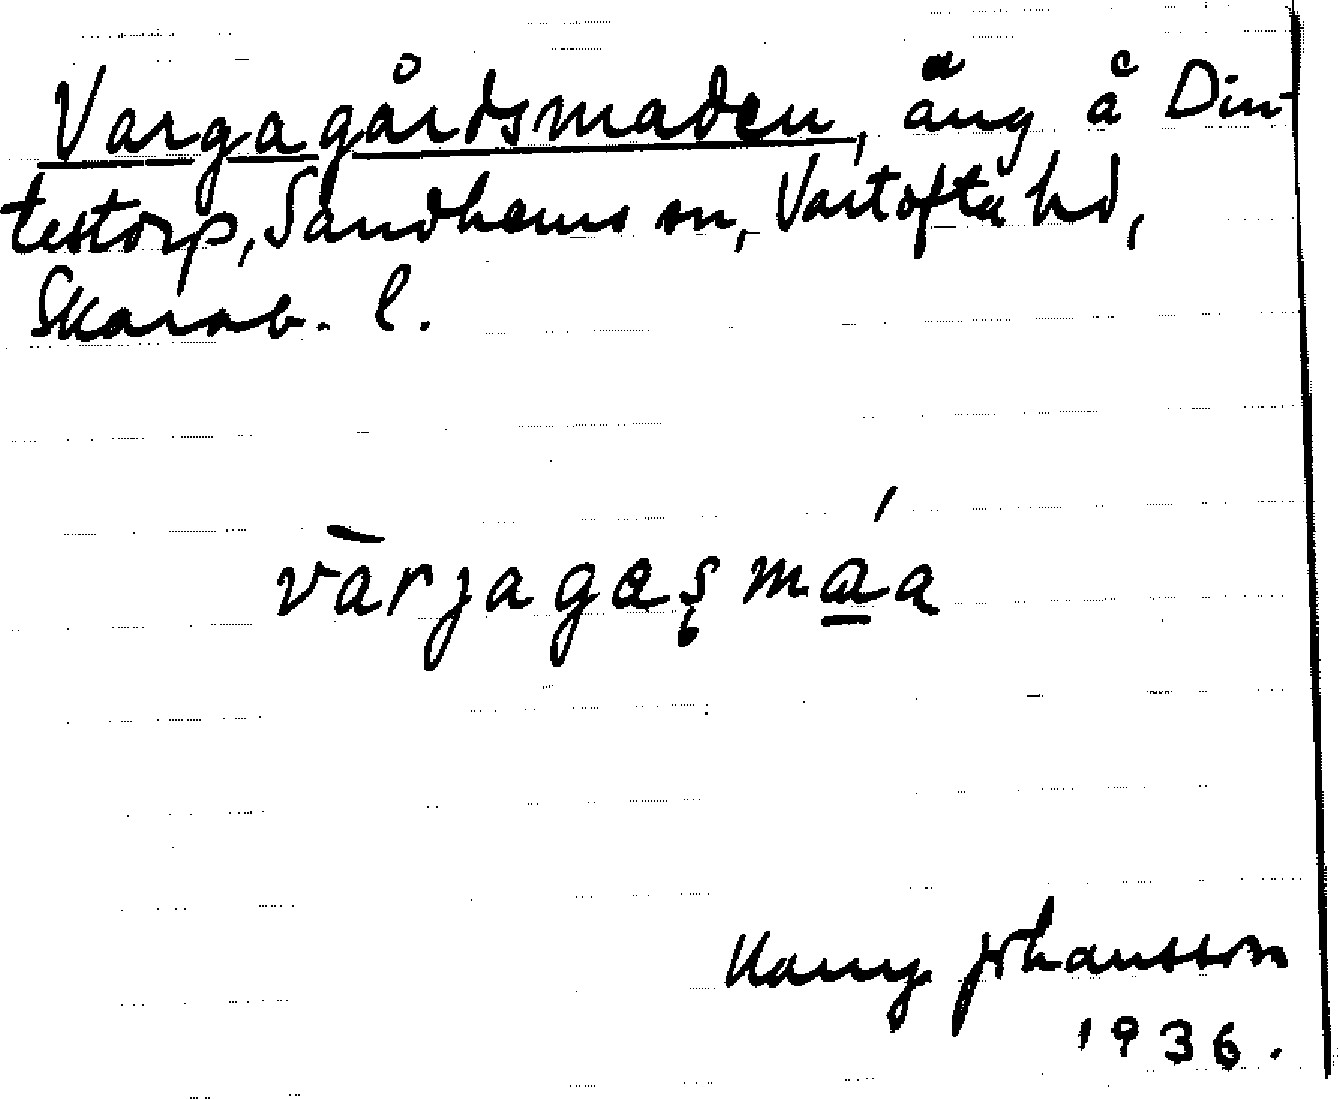 Vargagårdsmaden, äng å Din-
testorp, Sandhems sn, Vartofta hd,
Skarab. l.
várjagaṣmáa
Harry Johansson
1936.